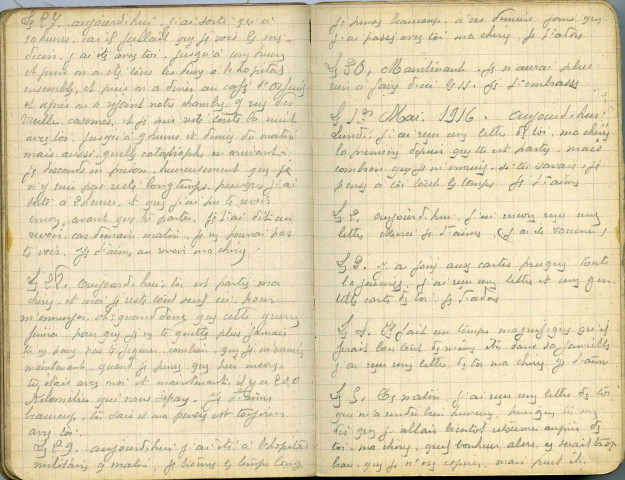 Le 27. aujourd'hui j'ai sorti qu'a
10 heures. car il fallait que je vois le me-
decin. j'ai été avec toi. jusqu'à une heure
et puis on a été tous les deux à l'hopital
ensemble, et puis on a diner au café d'
et après on a rejoint notre chambre. 9 rue des
vieille casernes, et je suis resté toute la nuit
avec toi. jusqu'à 9 heures et demie du matin
mais aussi quelle catastrophe en arrivant.
je descends en prison, heureusement que je
n'y suis pas resté longtemps, puisque j'ai
sorti à 2 heures. et que j'ai pu te revoir
encore, avant que tu partes. je t'ai dit au
revoir. car demain matin. je ne pourrai pas
te voir. Je t'aime au revoir ma chérie
Le 28. Aujourd'hui. toi est partie ma
chérie, et moi je reste tout seul ici. pour
m'ennuyer. oh! quand donc que cette guerre
finira. pour que je ne te quitte plus jamais
tu ne peux pas te figurer combien que je m'ennuie
maintenant. quand je pense que hier encore
tu étais avec moi et maintenant. il y a 200
kilomètres qui nous sépare. Je t'aime
beaucoup. tu sais et ma pensée est toujours
avec toi.
Le 29. aujourd'hui j'ai été à l'hopital
militaire ce matin. je trouve le temps long
je pense beaucoup. à ces derniers jours que
j'ai passé avec toi ma chérie. Je t'adore
Le 30. Maintenant. Je n'aurai plus
rien à faire d'ici le 11. Je t'embrasse
Le 1er Mai. 1916. aujourd'hui.
Lundi. j'ai reçu une lettre de toi. ma chérie
la première depuis que tu est partie. mais
combien que je m'ennuie. si tu savais. je
pense à toi tout le temps. Je t'aime
Le 2. aujourd'hui. j'ai encore reçu une
lettre. Merci je t'aime. (j'ai été vacciné)
Le 3. j'ai joué aux cartes presque toute
la journée. j'ai reçu une lettre et une gen-
tille carte de toi. Je t'adore
Le 4. Il fait un temps magnifique qu'il
ferait bon tout de même être dans sa famille
j'ai reçu une lettre de toi ma chérie je t'aime
Le 5. Ce matin. j'ai reçu une lettre de toi
qui m'a rendu bien heureux. puisque tu me
dis que j'allais bientôt revenir auprès de
toi. ma chérie. quel bonheur alors, ce serait trop
beau, que je n'ose espérer. mais peut être.